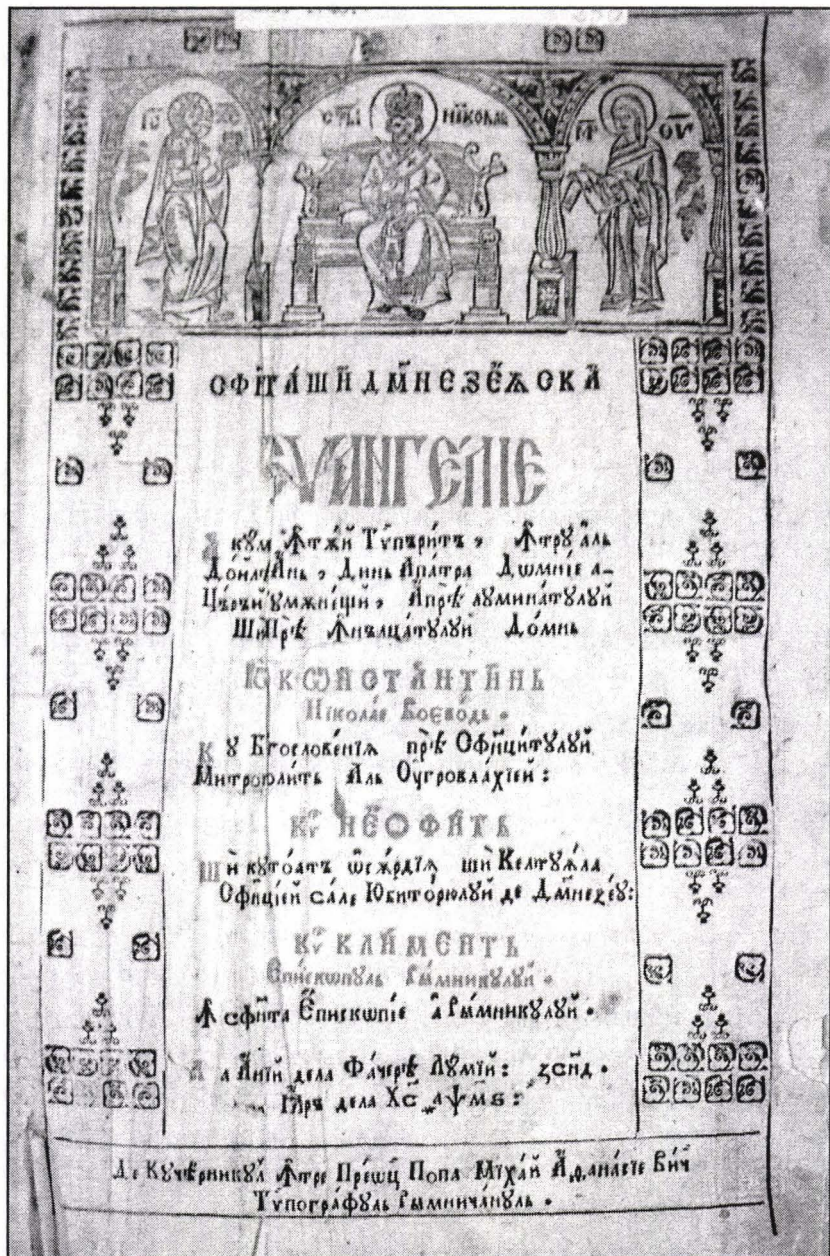 І҃С ХС
СФ҃ТЫ НИКОЛАЕ
М҃Р Ѳ҃У
СФ҃ѢТА ШИ ДМ҃НЕЗЕѪСКА
ЕѴАНГЕЛІЕ
Акум Ꙟтѫй Тѵпъритъ, Ꙟтру ал
Дойлѣ Ань, Динь Апатра Домніе а-
Църъй Румѫнещй, Апрѣ луминатулуй
Ши Прѣ Ꙟнълцатулуй Домнь
Іѡ҃ КѠНСТАНТИНЬ
Николае Воеводь.
Ку Бг҃ословеніѧ прѣ Сфинцитулуй
Митрополить Аль Оуггровлахіей:
Кѵ҃р НЕОФИТЬ
Ши кутоатъ ѡсѫрдіѧ ши Келтуѧла
Сфинціей сале Юбиторюлуй де Дм҃незеу:
Кѵ҃р КЛИМЕНТЬ
Епископуль Рымникулуй.
Ꙟ сфи҃та Епископіе а Рымникулуй.
Ла Аній дела Фачерѣ Лумій: ҂зсн҃д.
Іар дела Х҃с ҂аѱм҃ѕ:
Де Кучѣрникул Ꙟтре Преѡц Попа Міхай Аѳанасіе Вич
Тѵпографуль Рымничѣнуль.